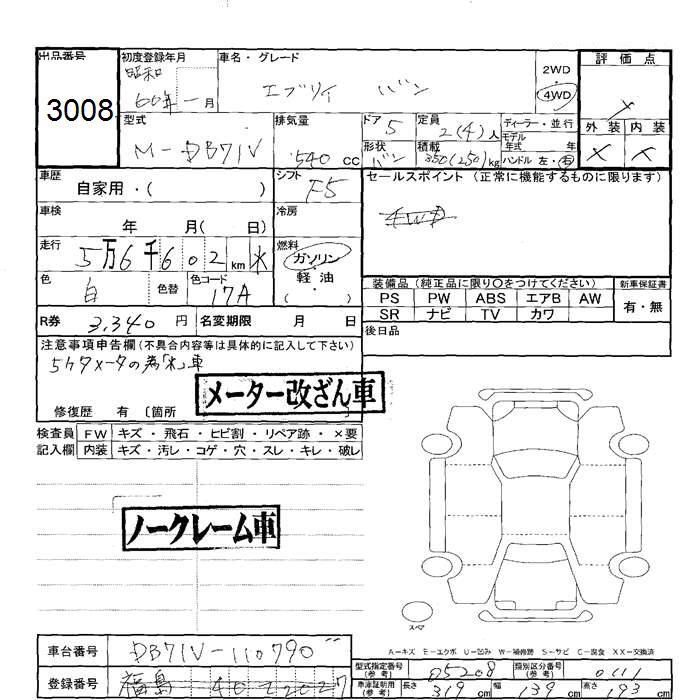 出品番号 初度登録年月 車名・グレード 2WD 評価点
3008 昭和60年 一月 エブリイ バン 4WD ×
外装 内装
型式 排気量 ドア 5 定員 2(4)人 ディーラー・並行
モデル年式 年
M-DB71V 540 cc 形状 バン 積載 350(250)kg ハンドル 左・右 × ×
車歴 自家用・( ) シフト F5 セールスポイント (正常に機能するものに限ります)
車検 年 月( 日) 冷房 4WD
走行 5万6千602km * 燃料 ガソリン・軽油・( )
色 白 色替 色コード 17A
装備品 (純正品に限り○をつけてください) 新車保証書
PS PW ABS エアB AW 有・無
SR ナビ TV カワ
R券 3,340円 名変期限 月 日 後日品
注意事項申告欄(不具合内容等は具体的に記入して下さい)
5ケタメータの為「*」車
メーター改ざん車
修復歴 有 〔箇所 〕
検査員 FW キズ・飛石・ヒビ割・リペア跡・×要
記入欄 内装 キズ・汚レ・コゲ・穴・スレ・キレ・破レ
ノークレーム車
スペア
A-キズ E-エクボ U-凹み W-補修跡 S-サビ C-腐食 XX-交換済
車台番号 DB71V-110790 型式指定番号(参考) 05208 類別区分番号(参考) 0111
登録番号 福島 40 車庫証明用(参考) 長さ 319cm 幅 139cm 高さ 193cm